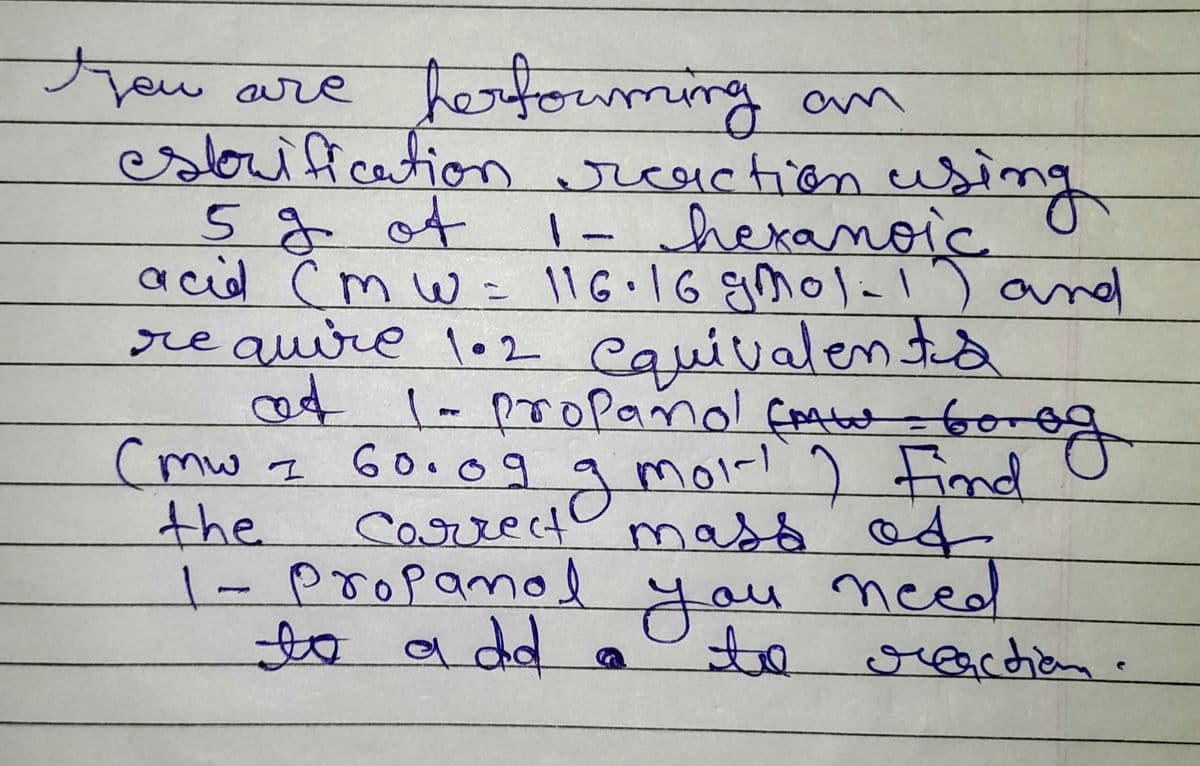 You are performing an
esterification reaction using
5 g of 1- hexanoic
acid (mw = 116.16 gmol-1) and
require 1.2 equivalents
of 1- propanol (mw = 60.09
(mw = 60.09 g mol-1) Find
the correct mass of
1- propanol you need
to add to reaction.